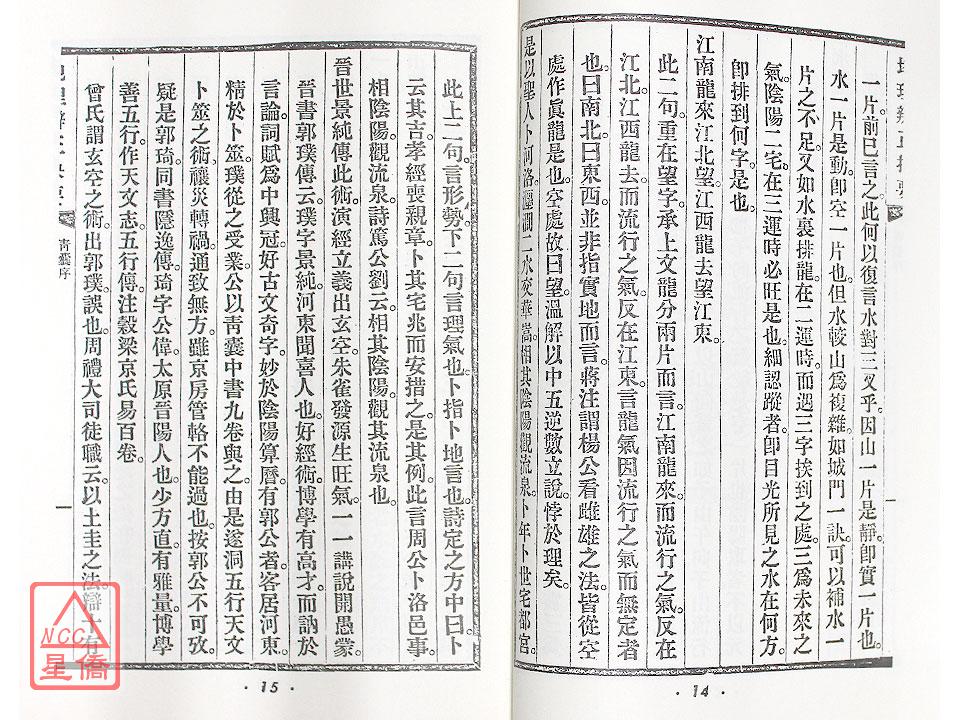 一片前已言之此何以復言水對三叉乎因山一片是靜即實一片也
水一片是動即空一片也但水較山為複雜如城門一訣可以補水一
片之不足又如水裏排龍在二運時而遇三字挨到之處三為未來之
氣陰陽二宅在三運時必旺是也細認蹤者即目光所見之水在何方
即排到何字是也
江南龍來江北望江西龍去望江東
此二句重在望字承上文龍分兩片而言江南龍來而流行之氣反在
江北江西龍去而流行之氣反在江東言龍氣因流行之氣而無定者
也曰南北曰東西並非指實地而言蔣注謂楊公看雌雄之法皆從空
處作真龍是也空處故曰望溫解以中五逆數立說悖於理矣
是以聖人卜河洛瀍澗二水交華嵩相其陰陽觀流泉卜年卜世宅都宮
· 14 ·
此上二句言形勢下二句言理氣也卜指卜地言也詩定之方中曰卜
云其吉孝經喪親章卜其宅兆而安措之是其例此言周公卜洛邑事
相陰陽觀流泉詩篤公劉云相其陰陽觀其流泉也
晉世景純傳此術演經立義出玄空朱雀發源生旺氣一一講說開愚蒙
晉書郭璞傳云璞字景純河東聞喜人也好經術博學有高才而訥於
言論詞賦為中興冠好古文奇字妙於陰陽算曆有郭公者客居河東
精於卜筮璞從之受業公以青囊中書九卷與之由是遂洞五行天文
卜筮之術禳災轉禍通致無方雖京房管輅不能過也按郭公不可攷
疑是郭琦同書隱逸傳琦字公偉太原晉陽人也少方直有雅量博學
善五行作天文志五行傳注穀梁京氏易百卷
曾氏謂玄空之術出郭璞誤也周禮大司徒職云以土圭之法辯十有
青囊序
一
· 15 ·
NCC
星僑